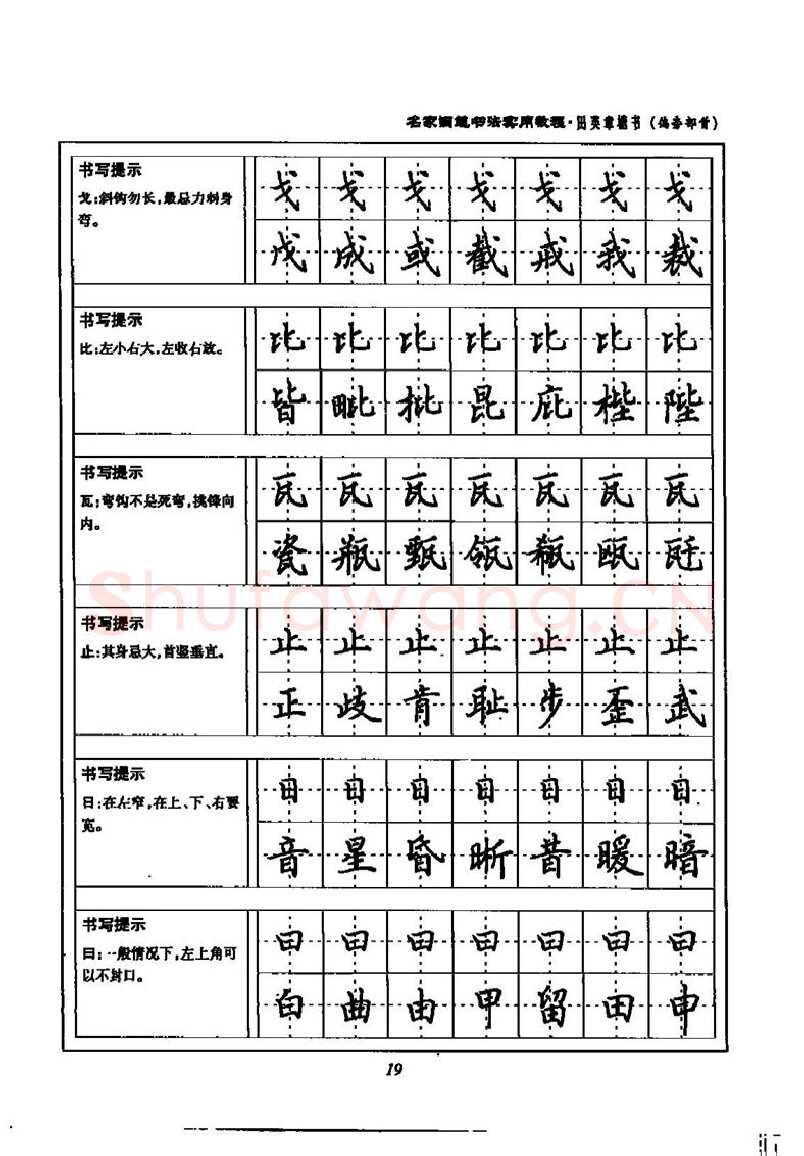 名家圆笔书法实用教程·田英章楷书(偏旁部首)
书写提示
戈:斜钩勿长,最忌力刺身
弯。
戈 戈 戈 戈 戈 戈 戈
戊 成 或 截 戒 我 裁
书写提示
比:左小右大,左收右放。
比 比 比 比 比 比 比
皆 毗 批 昆 庇 楷 陛
书写提示
瓦:弯钩不是死弯,挑锋向
内。
瓦 瓦 瓦 瓦 瓦 瓦 瓦
瓷 瓶 甄 瓴 瓻 瓯 瓩
Shufawang.CN
书写提示
止:其身忌大,首竖垂直。
止 止 止 止 止 止 止
正 歧 肯 耻 步 歪 武
书写提示
日:在左窄,在上、下、右要
宽。
日 日 日 日 日 日 日
音 星 昏 晰 昔 暖 暗
书写提示
曰:一般情况下,左上角可
以不封口。
曰 曰 曰 曰 曰 曰 曰
白 曲 由 甲 留 田 申
19